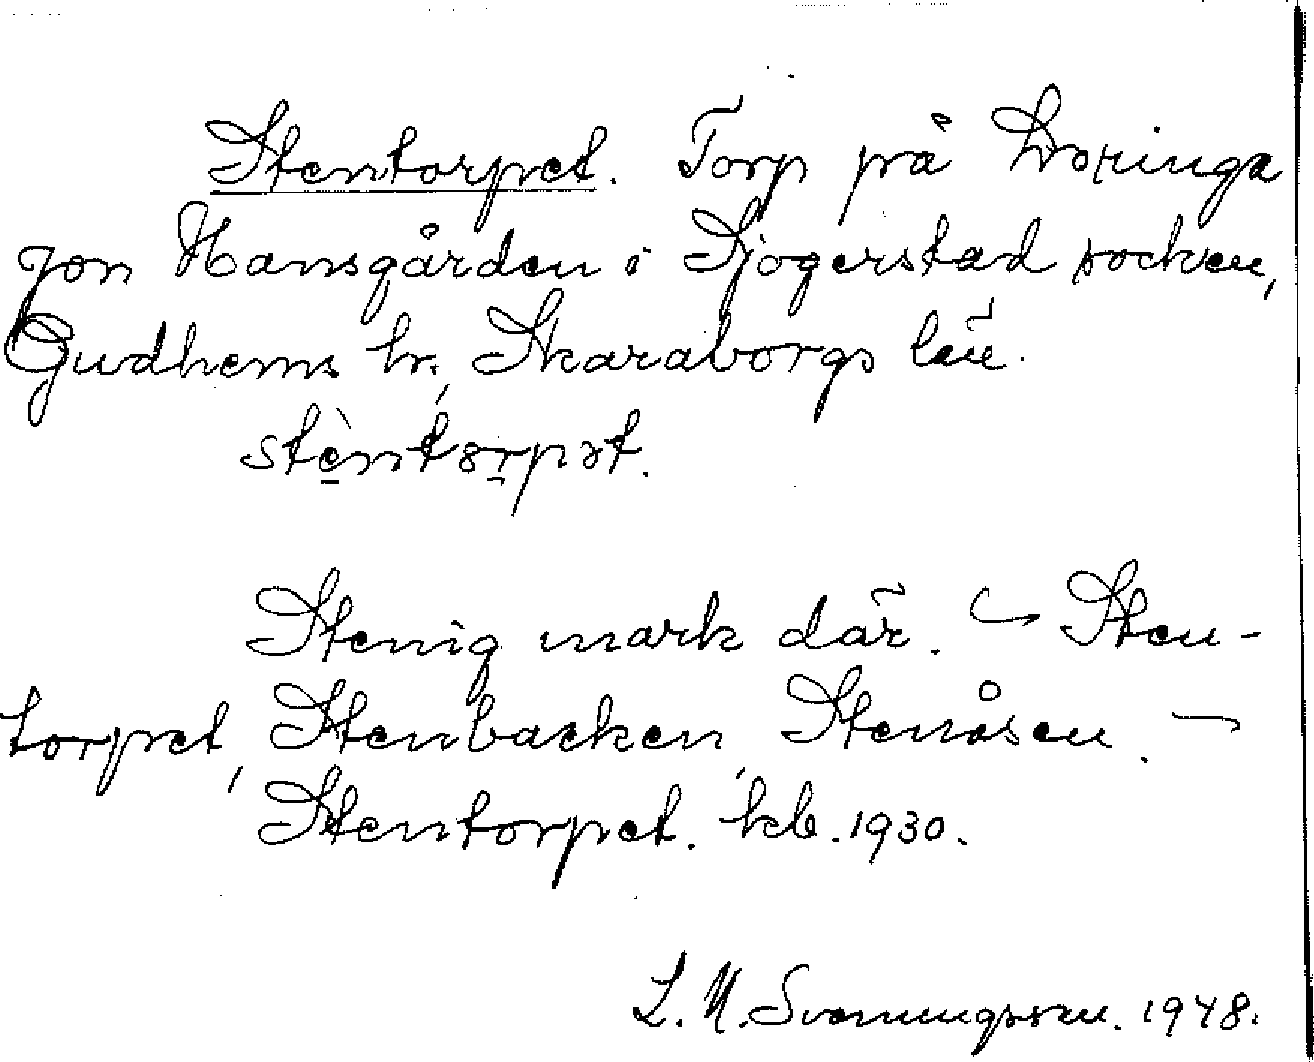 Stentorpet. Torp på Kvoringa
Jon Hansgården i Sjogerstad socken,
Gudhems hr, Skaraborgs län.
stèntorpət.
Stenig mark där. Sten-
torpet, Stenbacken, Stenåsen.
Stentorpet. kb. 1930.
L. N. Svenungsson. 1948.